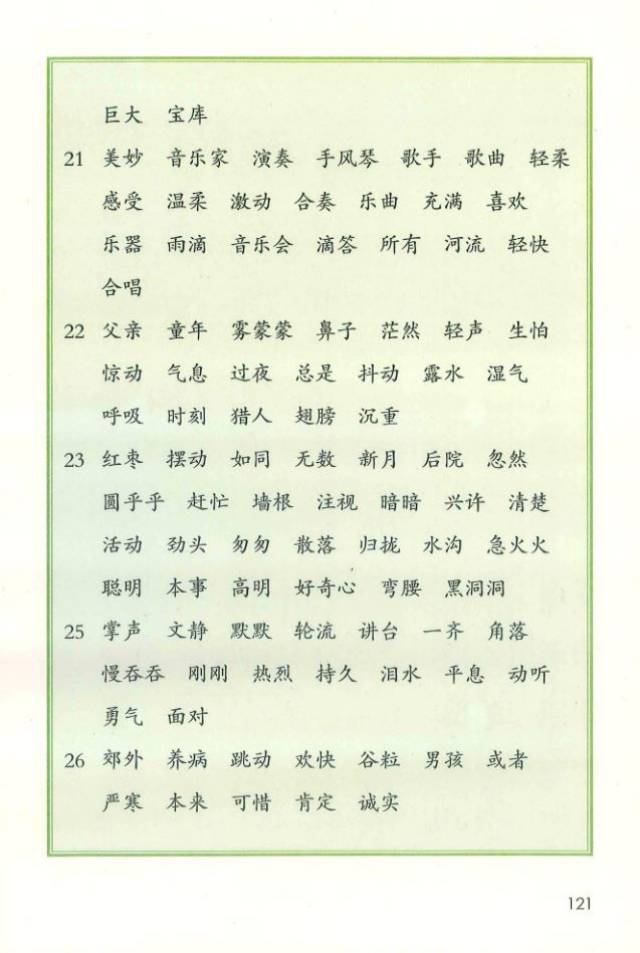 巨大 宝库
21 美妙 音乐家 演奏 手风琴 歌手 歌曲 轻柔
感受 温柔 激动 合奏 乐曲 充满 喜欢
乐器 雨滴 音乐会 滴答 所有 河流 轻快
合唱
22 父亲 童年 雾蒙蒙 鼻子 茫然 轻声 生怕
惊动 气息 过夜 总是 抖动 露水 湿气
呼吸 时刻 猎人 翅膀 沉重
23 红枣 摆动 如同 无数 新月 后院 忽然
圆乎乎 赶忙 墙根 注视 暗暗 兴许 清楚
活动 劲头 匆匆 散落 归拢 水沟 急火火
聪明 本事 高明 好奇心 弯腰 黑洞洞
25 掌声 文静 默默 轮流 讲台 一齐 角落
慢吞吞 刚刚 热烈 持久 泪水 平息 动听
勇气 面对
26 郊外 养病 跳动 欢快 谷粒 男孩 或者
严寒 本来 可惜 肯定 诚实
121